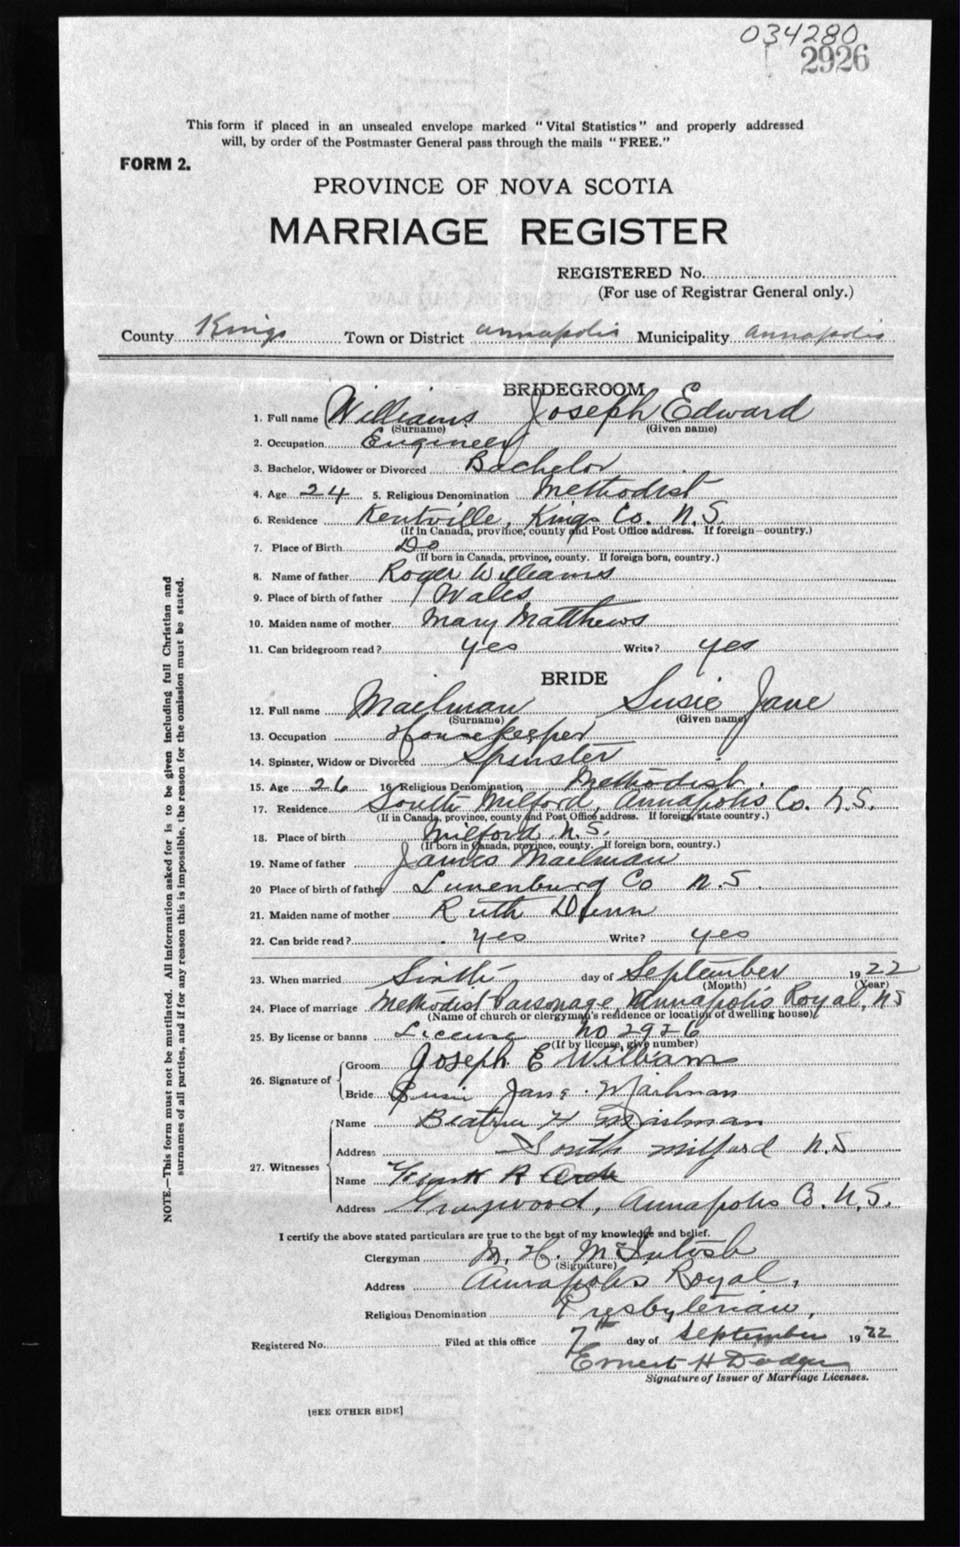 034280
2926
This form if placed in an unsealed envelope marked "Vital Statistics" and properly addressed
will, by order of the Postmaster General pass through the mails "FREE."
FORM 2.
PROVINCE OF NOVA SCOTIA
MARRIAGE REGISTER
REGISTERED No.
(For use of Registrar General only.)
County Kings Town or District Annapolis Municipality Annapolis
BRIDEGROOM
1. Full name Williams Joseph Edward
(Surname) (Given name)
2. Occupation Engineer
3. Bachelor, Widower or Divorced Bachelor
4. Age 24 5. Religious Denomination Methodist
6. Residence Kentville, Kings Co. N.S.
(If in Canada, province, county and Post Office address. If foreign—country.)
7. Place of Birth Do
(If born in Canada, province, county. If foreign born, country.)
8. Name of father Roger Williams
9. Place of birth of father Wales
10. Maiden name of mother Mary Matthews
11. Can bridegroom read? yes Write? yes
BRIDE
12. Full name Mailman Susie Jane
(Surname) (Given name)
13. Occupation Housekeeper
14. Spinster, Widow or Divorced Spinster
15. Age 26 16 Religious Denomination Methodist.
17. Residence South Milford, Annapolis Co. N.S.
(If in Canada, province, county and Post Office address. If foreign, state country.)
18. Place of birth Milford N.S.
(If born in Canada, province, county. If foreign born, country.)
19. Name of father James Mailman
20 Place of birth of father Lunenburg Co N.S.
21. Maiden name of mother Ruth Dunn
22. Can bride read? yes Write? yes
23. When married Sixth day of September 1922
(Month) (Year)
24. Place of marriage Methodist Parsonage, Annapolis Royal, NS
(Name of church or clergyman's residence or location of dwelling house)
25. By license or banns License No 2926
(If by license, give number)
26. Signature of Groom Joseph E Williams
Bride Susie Jane Mailman
27. Witnesses Name Mailman
Address South Milford N.S
Name Frank R
Address Graywood, Annapolis Co. N.S.
I certify the above stated particulars are true to the best of my knowledge and belief.
Clergyman M. H. McIntosh
(Signature)
Address Annapolis Royal,
Religious Denomination Presbyterian,
Registered No. Filed at this office 7th day of September 1922
Ernest H Dodge
Signature of Issuer of Marriage Licenses.
[SEE OTHER SIDE]
NOTE.—This form must not be mutilated. All information asked for is to be given including full Christian and
surnames of all parties, and if for any reason this is impossible, the reason for the omission must be stated.